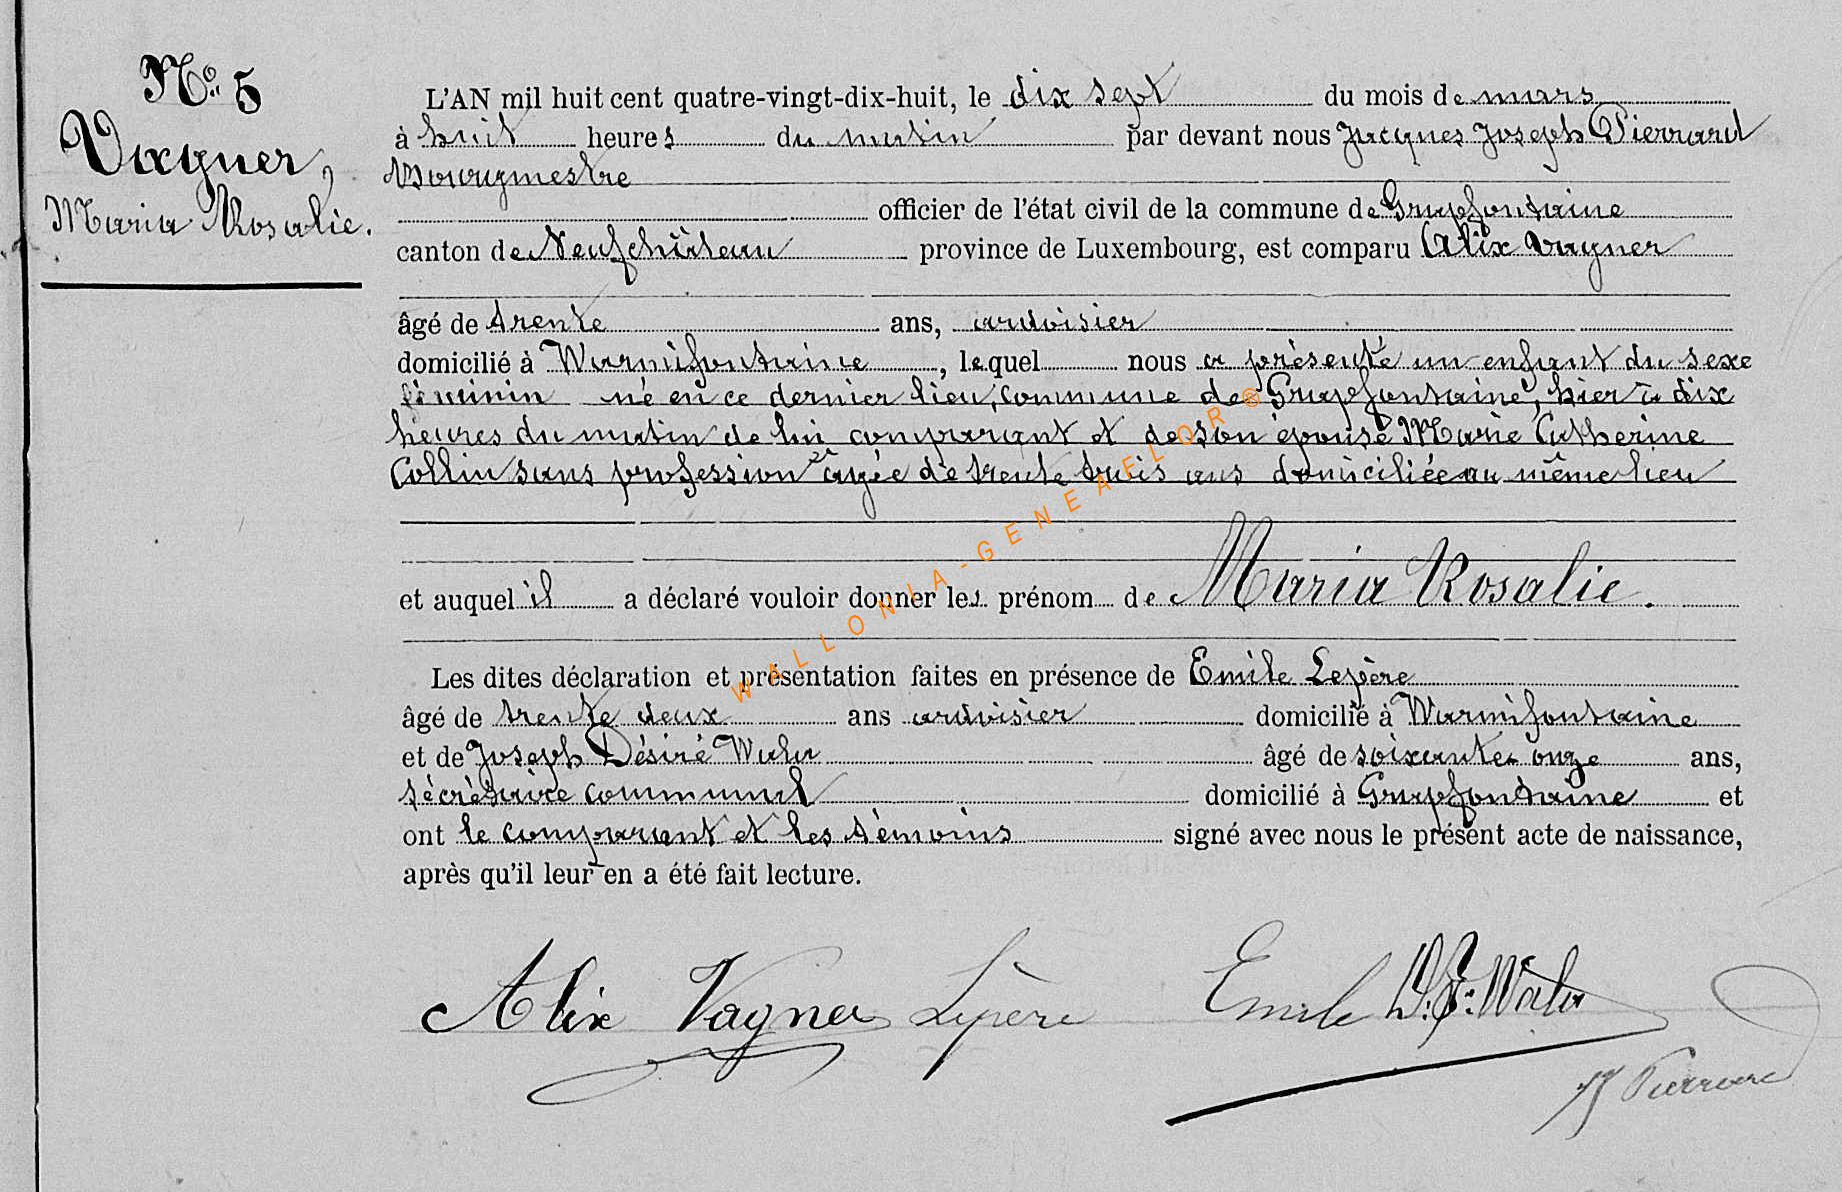 N° 5
Vagner,
Maria Rosalie.
L'AN mil huit cent quatre-vingt-dix-huit, le dix sept du mois de mars
à huit heures du matin par devant nous Jacques Joseph Pierrard
Bourgmestre
officier de l'état civil de la commune de Grapfontaine
canton de Neufchâteau province de Luxembourg, est comparu Alix Vagner
âgé de trente ans, ardoisier
domicilié à Warmifontaine, lequel nous a présenté un enfant du sexe
féminin né en ce dernier lieu, commune de Grapfontaine, hier à dix
heures du matin de lui comparant et de son épouse Marie Catherine
Collin sans profession âgée de trente trois ans domiciliée au même lieu
et auquel il a déclaré vouloir donner les prénom de Maria Rosalie.
Les dites déclaration et présentation faites en présence de Emile Lepère
âgé de trente deux ans ardoisier domicilié à Warmifontaine
et de Joseph Désiré Wala âgé de soixante onze ans,
sécrétaire communal domicilié à Grapfontaine et
ont le comparant et les témoins signé avec nous le présent acte de naissance,
après qu'il leur en a été fait lecture.
Alix Vagner Lepère Emile D. J. Wala
JJ Pierrard
WALLONIA-GENEAELOR ®